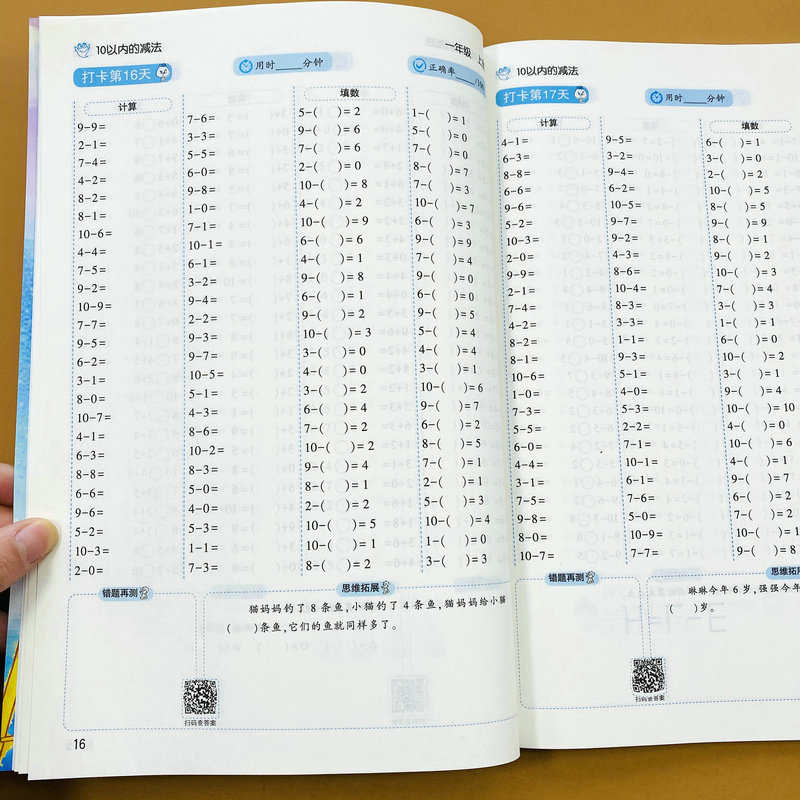 10以内的减法
一年级 上
打卡第16天
用时____分钟
正确率____/100
计算
9-9=
2-1=
7-4=
4-2=
8-2=
8-1=
10-6=
4-4=
7-5=
9-2=
10-9=
7-7=
9-5=
6-2=
3-1=
8-0=
10-7=
4-1=
6-3=
8-8=
6-6=
9-6=
5-2=
10-3=
2-0=
7-6=
3-3=
5-5=
6-0=
9-8=
1-0=
7-1=
10-1=
6-1=
3-2=
9-4=
2-2=
9-3=
9-7=
10-5=
5-1=
4-3=
8-6=
10-2=
8-3=
5-0=
4-0=
5-3=
1-1=
7-3=
填数
5-( )=2
9-( )=6
7-( )=6
2-( )=0
10-( )=8
4-( )=2
10-( )=9
6-( )=6
4-( )=1
9-( )=8
6-( )=1
9-( )=2
10-( )=3
3-( )=0
4-( )=0
3-( )=2
6-( )=4
7-( )=2
10-( )=2
9-( )=4
8-( )=1
2-( )=2
10-( )=5
10-( )=1
8-( )=2
1-( )=1
5-( )=0
8-( )=7
7-( )=3
10-( )=7
6-( )=3
9-( )=9
7-( )=4
9-( )=0
6-( )=0
9-( )=5
5-( )=4
4-( )=4
3-( )=1
10-( )=6
9-( )=7
6-( )=2
8-( )=5
7-( )=1
2-( )=1
5-( )=3
10-( )=4
1-( )=0
3-( )=3
错题再测
扫码查答案
思维拓展
猫妈妈钓了 8 条鱼,小猫钓了 4 条鱼,猫妈妈给小猫
( )条鱼,它们的鱼就同样多了。
16
10以内的减法
打卡第17天
用时____分钟
计算
4-1=
6-3=
8-8=
6-6=
9-6=
5-2=
10-3=
2-0=
9-9=
2-1=
7-4=
4-2=
8-2=
8-1=
10-6=
1-0=
7-3=
5-5=
6-0=
4-4=
3-1=
7-5=
9-8=
8-0=
10-7=
9-5=
3-2=
9-4=
6-2=
10-5=
9-7=
9-2=
4-3=
8-6=
10-4=
8-3=
3-3=
1-1=
9-3=
5-1=
4-0=
5-3=
2-2=
7-1=
10-1=
6-1=
7-6=
5-0=
10-9=
7-7=
填数
6-( )=1
3-( )=0
2-( )=2
10-( )=5
8-( )=5
9-( )=9
8-( )=1
9-( )=2
10-( )=3
7-( )=4
3-( )=3
1-( )=1
6-( )=0
10-( )=2
3-( )=1
4-( )=0
9-( )=5
10-( )=10
4-( )=0
10-( )=6
4-( )=1
9-( )=7
6-( )=2
7-( )=2
10-( )=1
9-( )=8
错题再测
扫码查答案
思维拓展
琳琳今年 6 岁,强强今年
( )岁。